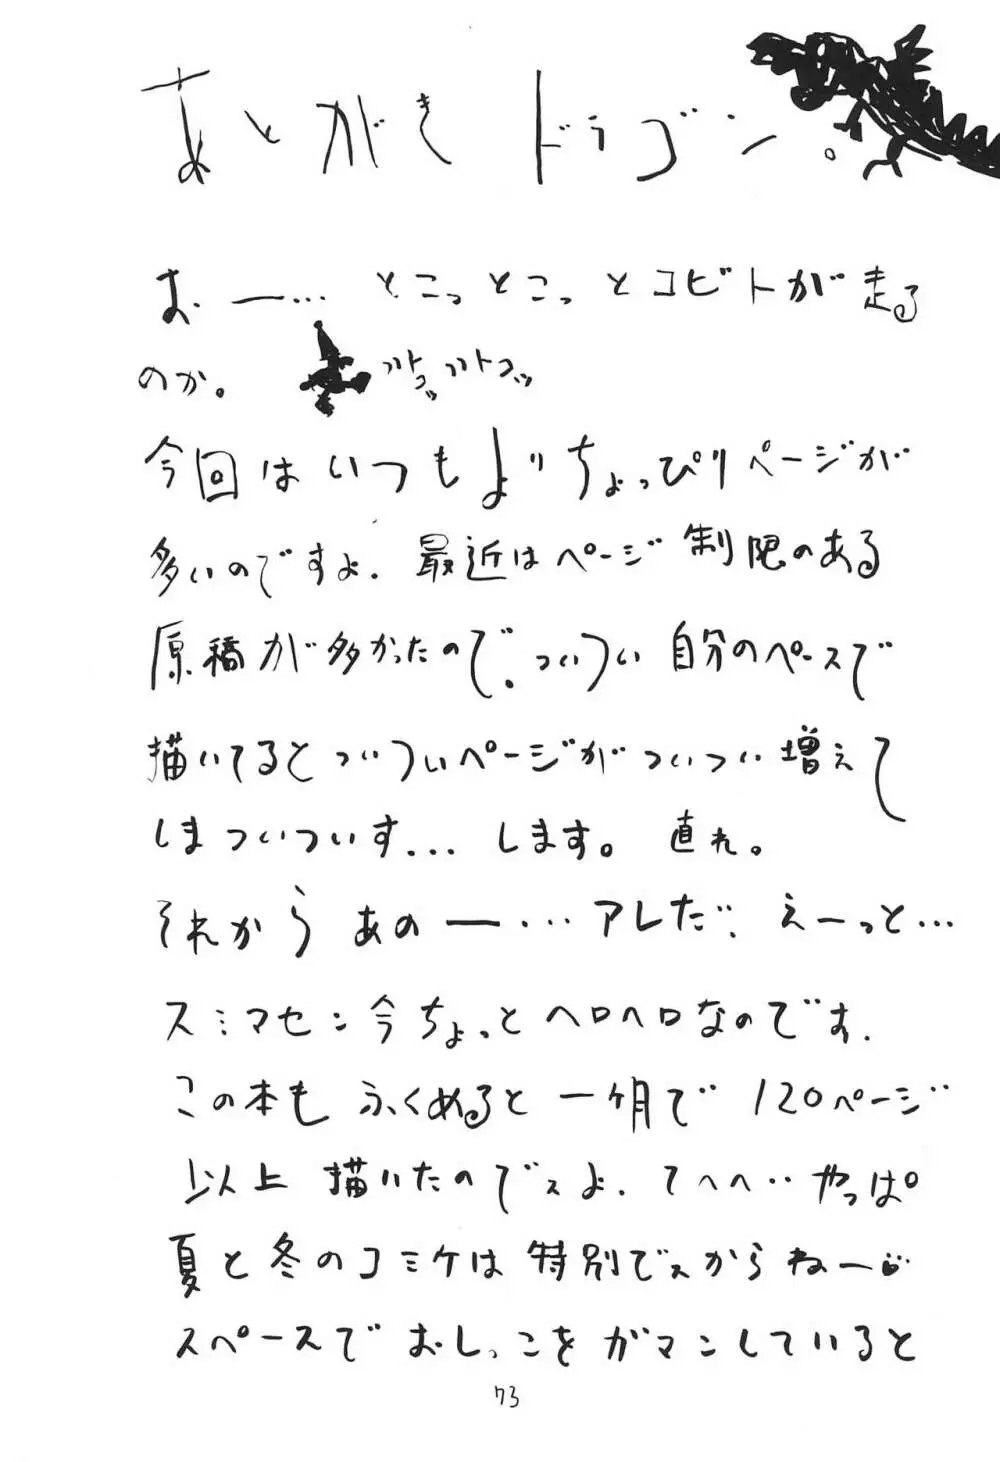 あとがきドラゴン。
お ー… とこっとこっとコビトが走る
のか。 トコッ トコッ
今回はいつもよりちょっぴりページが
多いのですよ. 最近はページ制限のある
原稿が多かったので.ついつい自分のペースで
描いてるとついついページがついつい増えて
しまついついす... します。直れ。
それから あのー… アレだ.. えーっと…
スミマセン今ちょっとヘロヘロなのです.
この本も ふくめると 一ヶ月で 120ページ
以上 描いたのでスよ. てへへ‥ やっぱ
夏と冬のコミケは特別でスからねー
スペースで おしっこを ガマンしていると
73